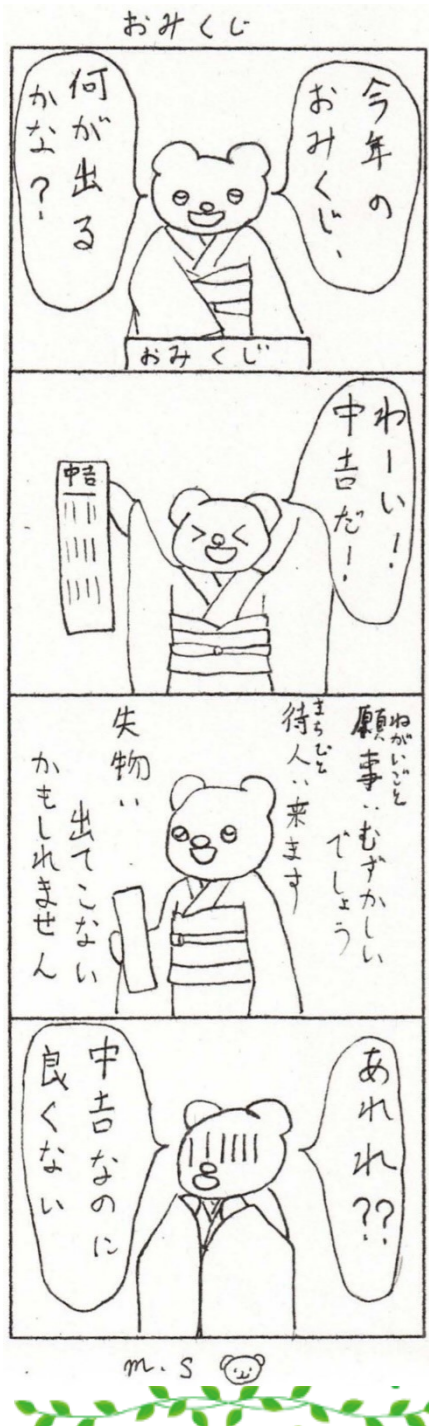 おみくじ
今年の
おみくじ、
何が出る
かな？
おみくじ
わーい！
中吉だ！
中吉
ねがいごと
願事：むずかしい
でしょう
まちびと
待人：来ます
失物：
出てこない
かもしれません
あれれ??
中吉なのに
良くない
m.s